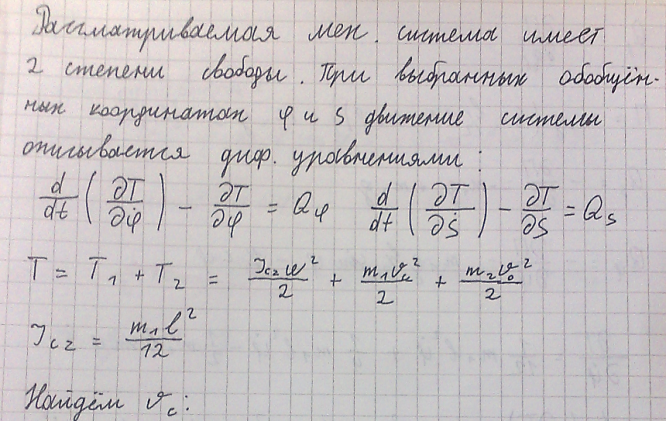 Рассматриваемая мех. система имеет
2 степени свободы. При выбранных обобщён-
ных координатах φ и s движение системы
описывается диф. уравнениями:
d/dt (∂T/∂φ̇) − ∂T/∂φ = Qφ   d/dt (∂T/∂ṡ) − ∂T/∂s = Qs
T = T₁ + T₂ = Jcz ω²/2 + m₁ϑc²/2 + m₂ϑ₀²/2
Jcz = m₁l²/12
Найдём ϑc: